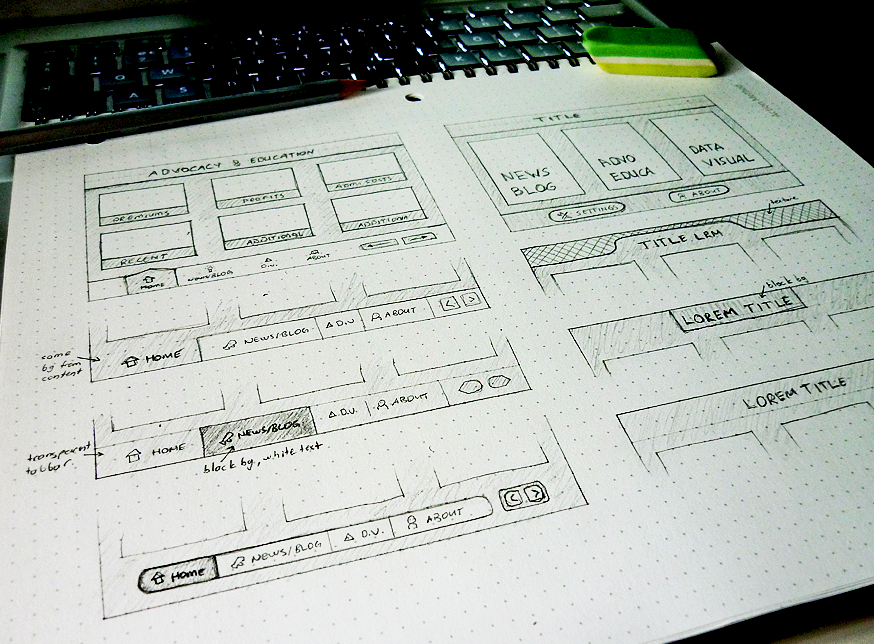 ADVOCACY & EDUCATION
PREMIUMS
PROFITS
ADMI COSTS
RECENT
ADDITIONAL
ADDITIONA
HOME
NEWS/BLOG
D.V.
ABOUT
come
bg from
content
HOME
NEWS/BLOG
D.V
ABOUT
transparent
tabbar.
HOME
NEWS/BLOG
D.V.
ABOUT
block bg, white text
Home
NEWS/BLOG
D.V.
ABOUT
TITLE
NEWS
BLOG
ADVO
EDUCA
DATA
VISUAL
SETTINGS
ABOUT
texture
TITLE LRM
block bg
LOREM TITLE
LOREM TITLE
Q
W
A
S